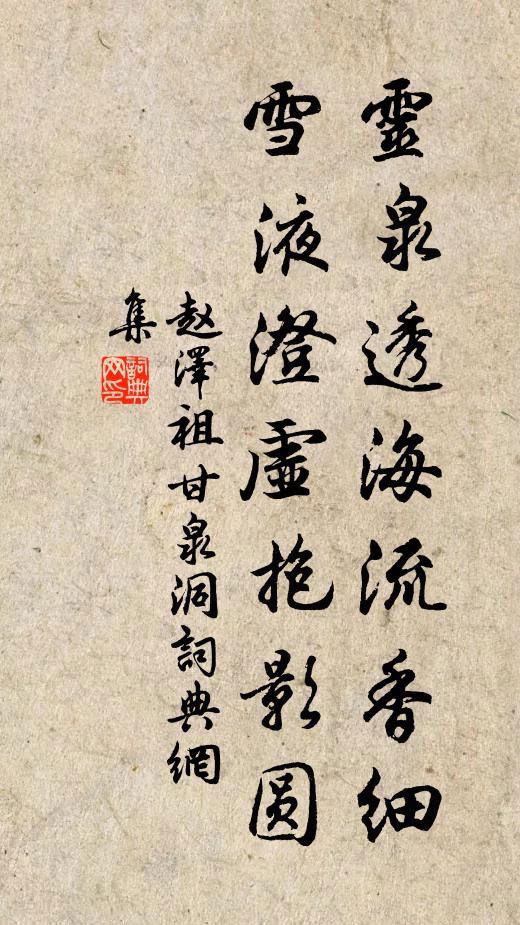 靈泉透海流香細
雪液澄虛抱影圓
赵澤祖甘泉洞詞典網
集
詞典网印